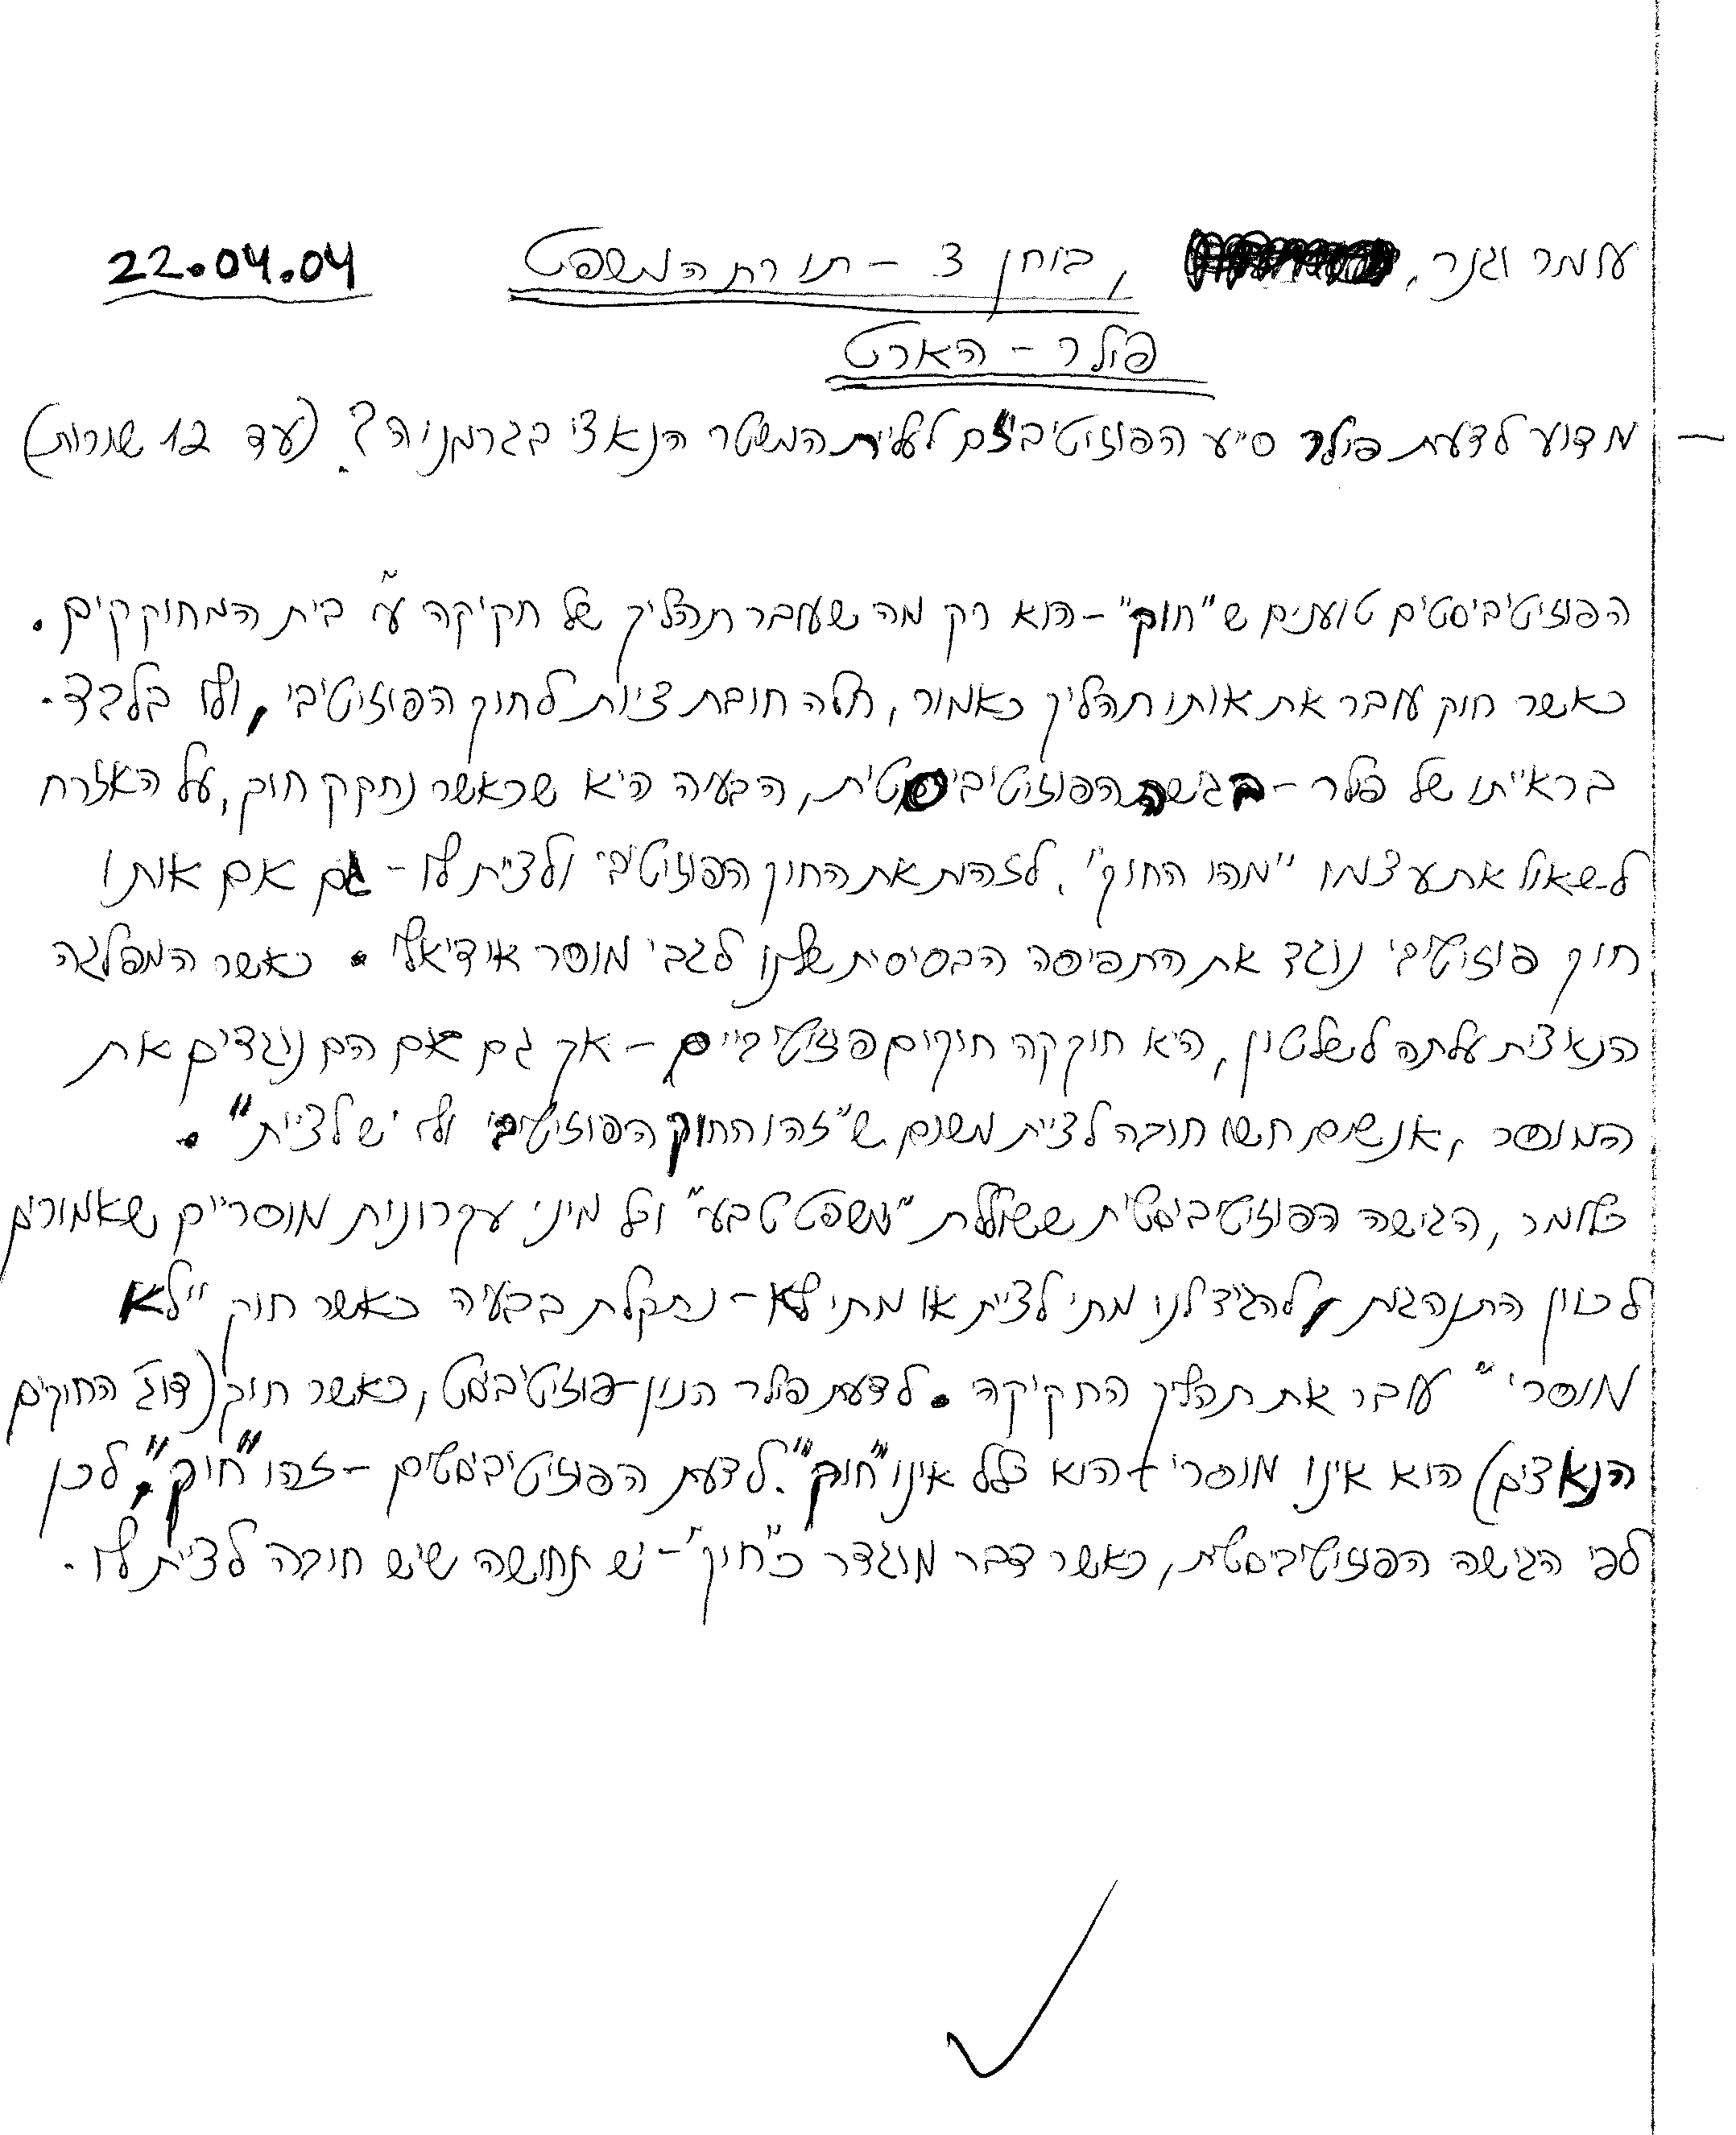 עומר וגנר, , בוחן 3 - תורת המשפט 22.04.04
פולר - הארט
- מדוע לדעת פולר סייע הפוזיטיביזם לעליית המשטר הנאצי בגרמניה? (עד 12 שורות)
הפוזיטיביסטים טוענים ש"חוק" - הוא רק מה שעובר תהליך של חקיקה ע"י בית המחוקקים.
כאשר חוק עובר את אותו תהליך כאמור, חלה חובת ציות לחוק הפוזיטיבי, ולו בלבד.
בראייתו של פולר - בגישה הפוזיטיביסטית, הבעיה היא שכאשר נחקק חוק, על האזרח
לשאול את עצמו "מהו החוק", לזהות את החוק הפוזיטיבי ולציית לו - גם אם אותו
חוק פוזיטיבי נוגד את התפיסה הבסיסית שלנו לגבי מוסר אידיאלי. כאשר המפלגה
הנאצית עלתה לשלטון, היא חוקקה חוקים פוזיטיביים - אך גם אם הם נוגדים את
המוסר, אנשים חשו חובה לציית משום ש"זהו החוק הפוזיטיבי ולו יש לציית".
כלומר, הגישה הפוזיטיביסטית ששוללת "משפט טבעי" וכל מיני עקרונות מוסריים שאמורים
לכוון התנהגות ולהגיד לנו מתי לציית או מתי לא - נתקלת בבעיה כאשר חוק "לא
מוסרי" עובר את תהליך החקיקה. לדעת פולר הנון-פוזיטיביסט, כאשר חוק (דוג' החוקים
הנאצים) הוא אינו מוסרי - הוא כלל אינו "חוק". לדעת הפוזיטיביסטים - זהו "חוק". לכן
לפי הגישה הפוזיטיביסטית, כאשר דבר מוגדר כ"חוק" - יש תחושה שיש חובה לציית לו.